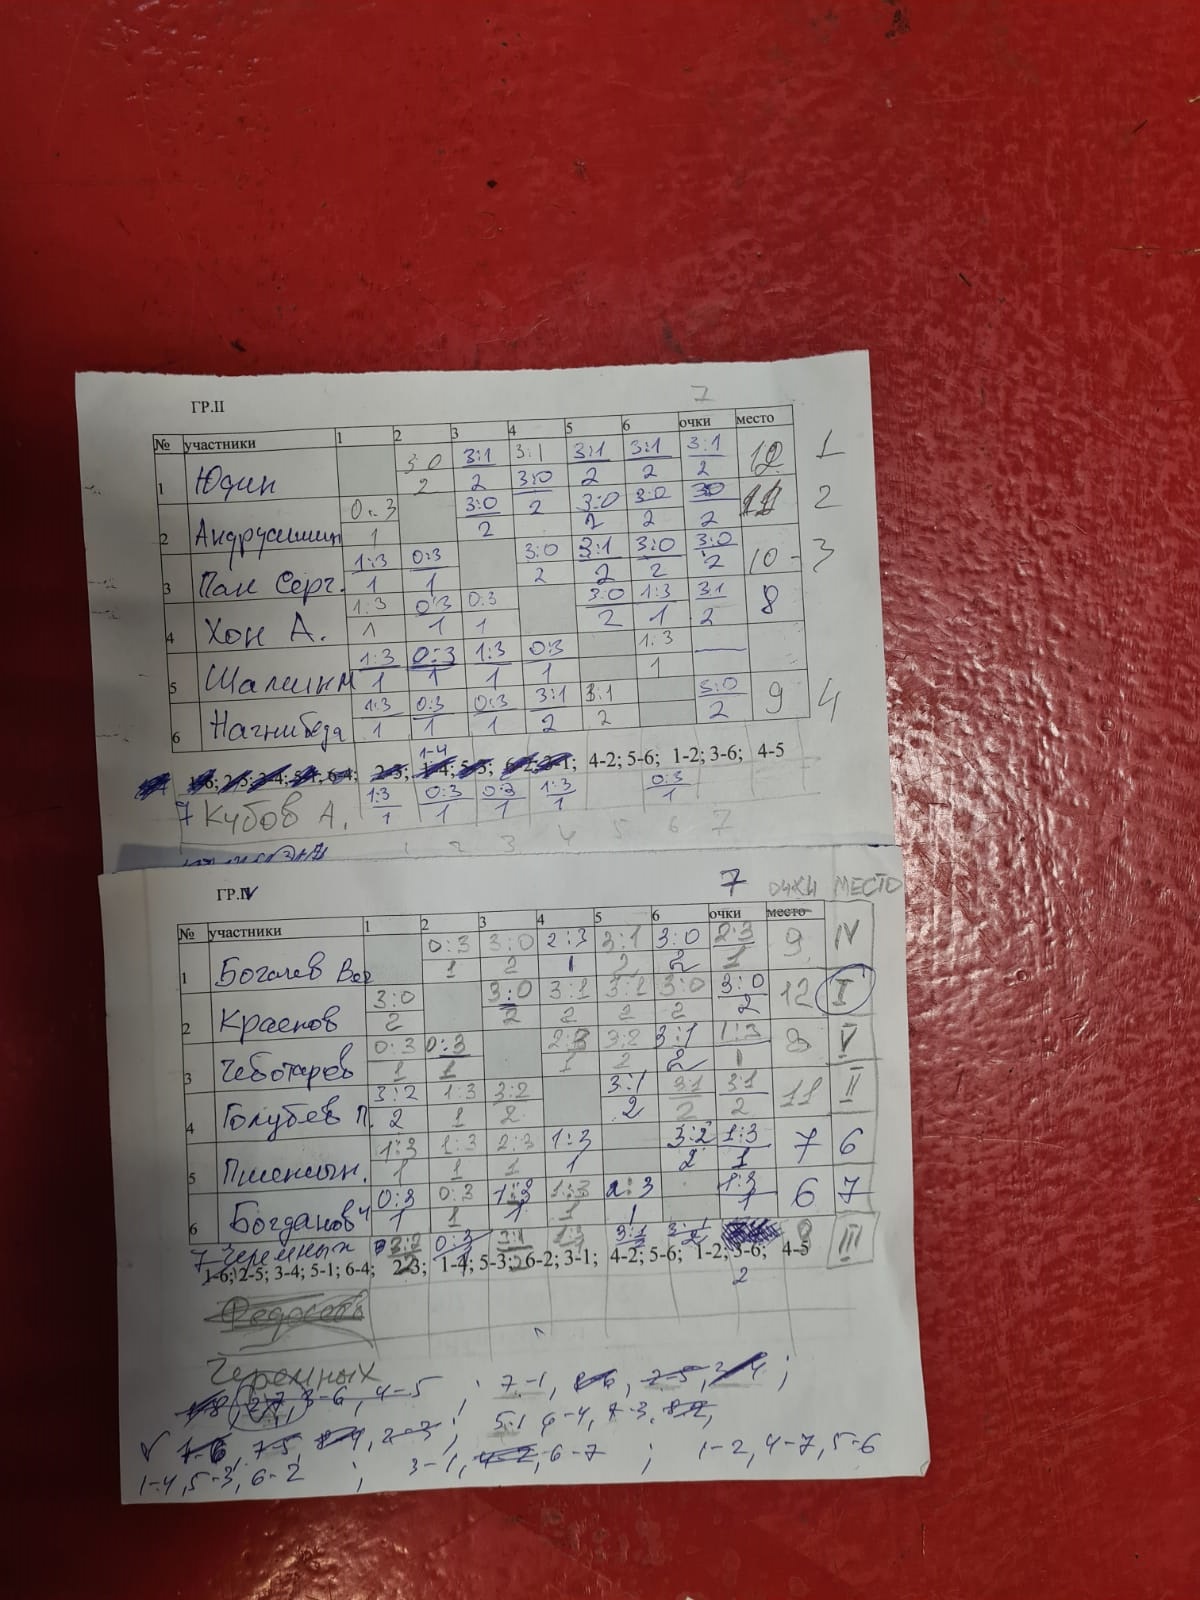 ГР.II 7
№ участники 1 2 3 4 5 6 очки место
1 Юдин 3:0 2 3:1 2 3:1 3:0 2 3:1 2 3:1 2 3:1 2 12 1
2 0:3 1 3:0 2 3:0 2 3:0 2 3:0 2 11 2
3 Пак Серг. 1:3 1 0:3 1 3:0 2 3:1 2 3:0 2 3:0 2 10 - 3
4 Хон А. 1:3 1 0:3 1 0:3 1 3:0 2 1:3 1 3:1 2 8
5 1:3 1 0:3 1 1:3 1 0:3 1 1:3 1 —
6 Нагнибеда 1:3 1 0:3 1 0:3 1 3:1 2 3:1 2 3:0 2 9 4
1-4
4-2; 5-6; 1-2; 3-6; 4-5
7 Кубов А. 1:3 1 0:3 1 0:3 1 1:3 1 0:3 1
1 2 3 4 5 6 7
ГР.IV 7 ОЧКИ МЕСТО
№ участники 1 2 3 4 5 6 очки место
1 Богачев 0:3 1 3:0 2 2:3 1 3:1 2 3:0 2 2:3 1 9 IV
2 Краснов 3:0 2 3:0 2 3:1 2 3:1 2 3:0 2 3:0 2 12 I
3 Чеботарев 0:3 1 0:3 1 2:3 1 3:2 2 3:1 2 1:3 1 8 V
4 Голубев П. 3:2 2 1:3 1 3:2 2 3:1 2 3:1 2 3:1 2 11 II
5 1:3 1 1:3 1 2:3 1 1:3 1 3:2 2 1:3 1 7 6
6 Богданов Ч 0:3 1 0:3 1 1:3 1 1:3 1 2:3 1 1:3 1 6 7
7 Черемных 3:2 0:3 3:1 1:3 3:1 3:1 III
1-6; 2-5; 3-4; 5-1; 6-4; 2-3; 1-4; 5-3; 6-2; 3-1; 4-2; 5-6; 1-2; 3-6; 4-5
2
Черемных
2-7, 3-6, 4-5 ; 7-1, 2-5, 3-4 ;
7-5, 2-3 ; 5-1, 6-4, 7-3,
1-4, 5-3, 6-2 ; 3-1, 4-2, 6-7 ; 1-2, 4-7, 5-6